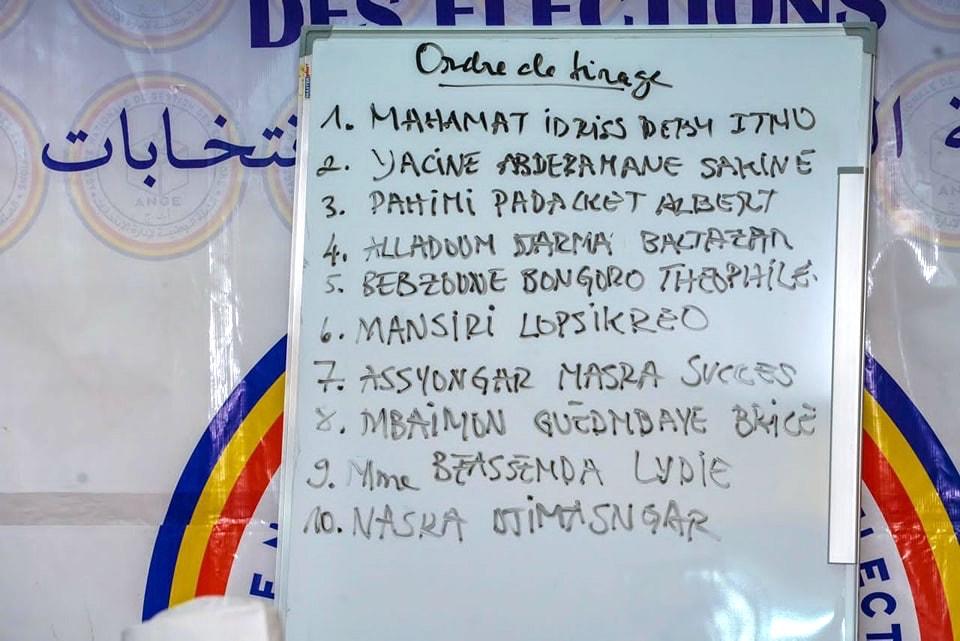 DES ELECTIONS
نتخابات
Ordre de tirage
1. MAHAMAT IDRISS DEBY ITNO
2. YACINE ABDERAMANE SAKINE
3. PAHIMI PADACKET ALBERT
4. ALLADOUM DJARMA BALTAZAR
5. BEBZOUNE BONGORO THEOPHILE.
6. MANSIRI LOPSIKREO
7. ASSYONGAR MASRA SUCCES
8. MBAIMON GUEDMBAYE BRICE
9. Mme BEASSEMDA LYDIE
10. NASRA DJIMASNGAR
ANGE